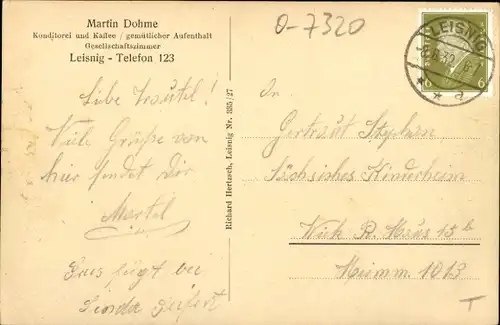 Martin Dohme
Konditorei und Kaffee / gemütlicher Aufenthalt
Gesellschaftszimmer
Leisnig - Telefon 123
o-7320
LEISNIG
a
6
Liebe Trautel!
Viele Grüße von
hier sendet Dir
Martel
Gruß fügt bei
Linda Seifert
Richard Hertzsch, Leisnig Nr. 335/27
An
Gertraut Stephan
Sächsisches Kinderheim
Wiek R. Haus 15b
Heimm. 1013
T